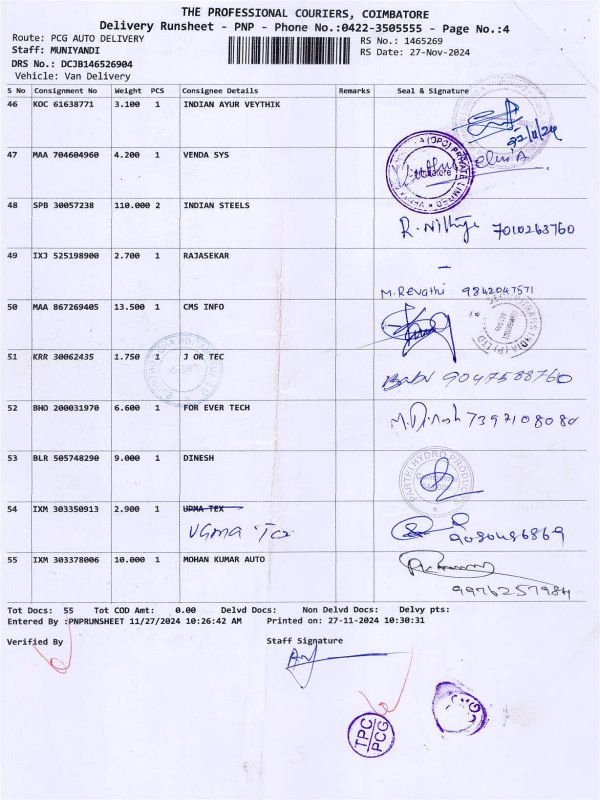 THE PROFESSIONAL COURIERS, COIMBATORE
Delivery Runsheet - PNP - Phone No.:0422-3505555 - Page No.:4
Route: PCG AUTO DELIVERY RS No.: 1465269
Staff: MUNIYANDI RS Date: 27-Nov-2024
DRS No.: DCJB146526904
Vehicle: Van Delivery
S No Consignment No Weight PCS Consignee Details Remarks Seal & Signature
46 KOC 61638771 3.100 1 INDIAN AYUR VEYTHIK
47 MAA 704604960 4.200 1 VENDA SYS
(OPC) PRIVATE LIMITED
48 SPB 30057238 110.000 2 INDIAN STEELS
7010263760
49 IXJ 525198900 2.700 1 RAJASEKAR
M. Revathi 9842047571
50 MAA 867269405 13.500 1 CMS INFO
51 KRR 30062435 1.750 1 J OR TEC
Babu 9047588760
52 BHO 200031970 6.600 1 FOR EVER TECH
M. Dinesh 7397108080
53 BLR 505748290 9.000 1 DINESH
54 IXM 303350913 2.900 1 UPMA TEX
9080486869
55 IXM 303378006 10.000 1 MOHAN KUMAR AUTO
9976257984
Tot Docs: 55 Tot COD Amt: 0.00 Delvd Docs: Non Delvd Docs: Delvy pts:
Entered By :PNPRUNSHEET 11/27/2024 10:26:42 AM Printed on: 27-11-2024 10:30:31
Verified By Staff Signature
TPC
PCG